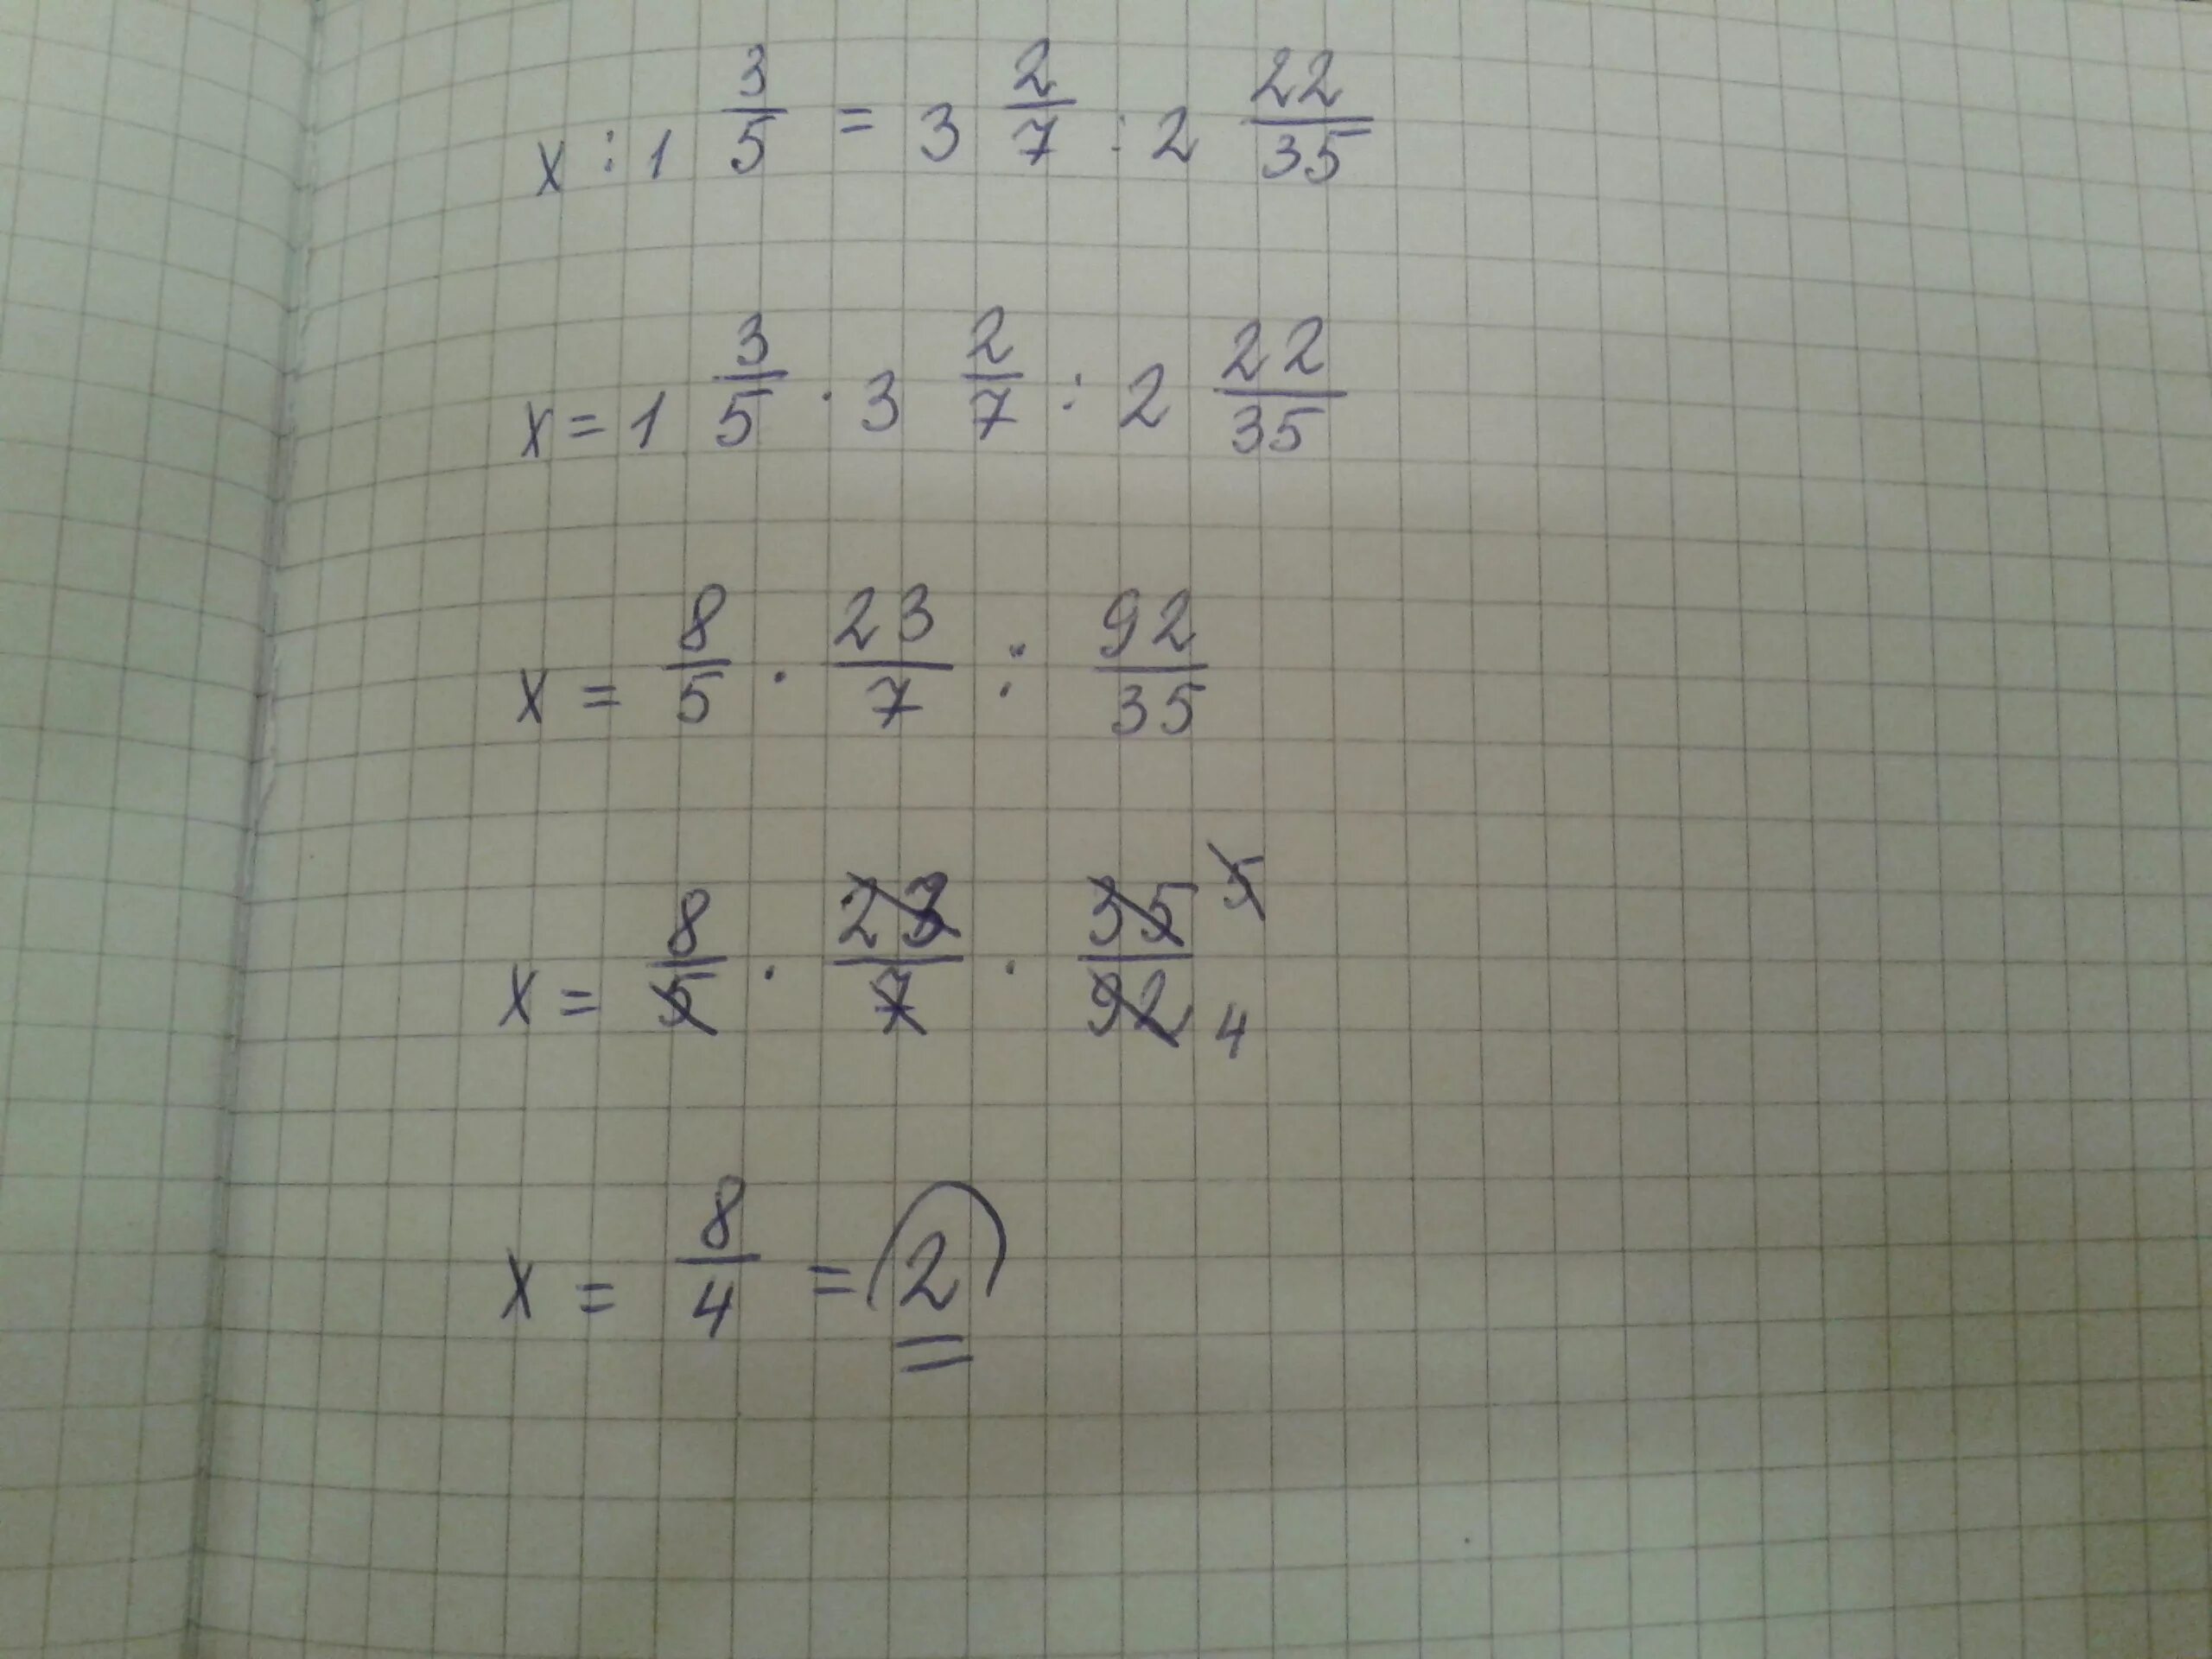 x : 1 3/5 = 3 2/7 : 2 22/35
x = 1 3/5 · 3 2/7 : 2 22/35
x = 8/5 · 23/7 : 92/35
x = 8/5 · 23/7 · 35/92 5 4
x = 8/4 = 2